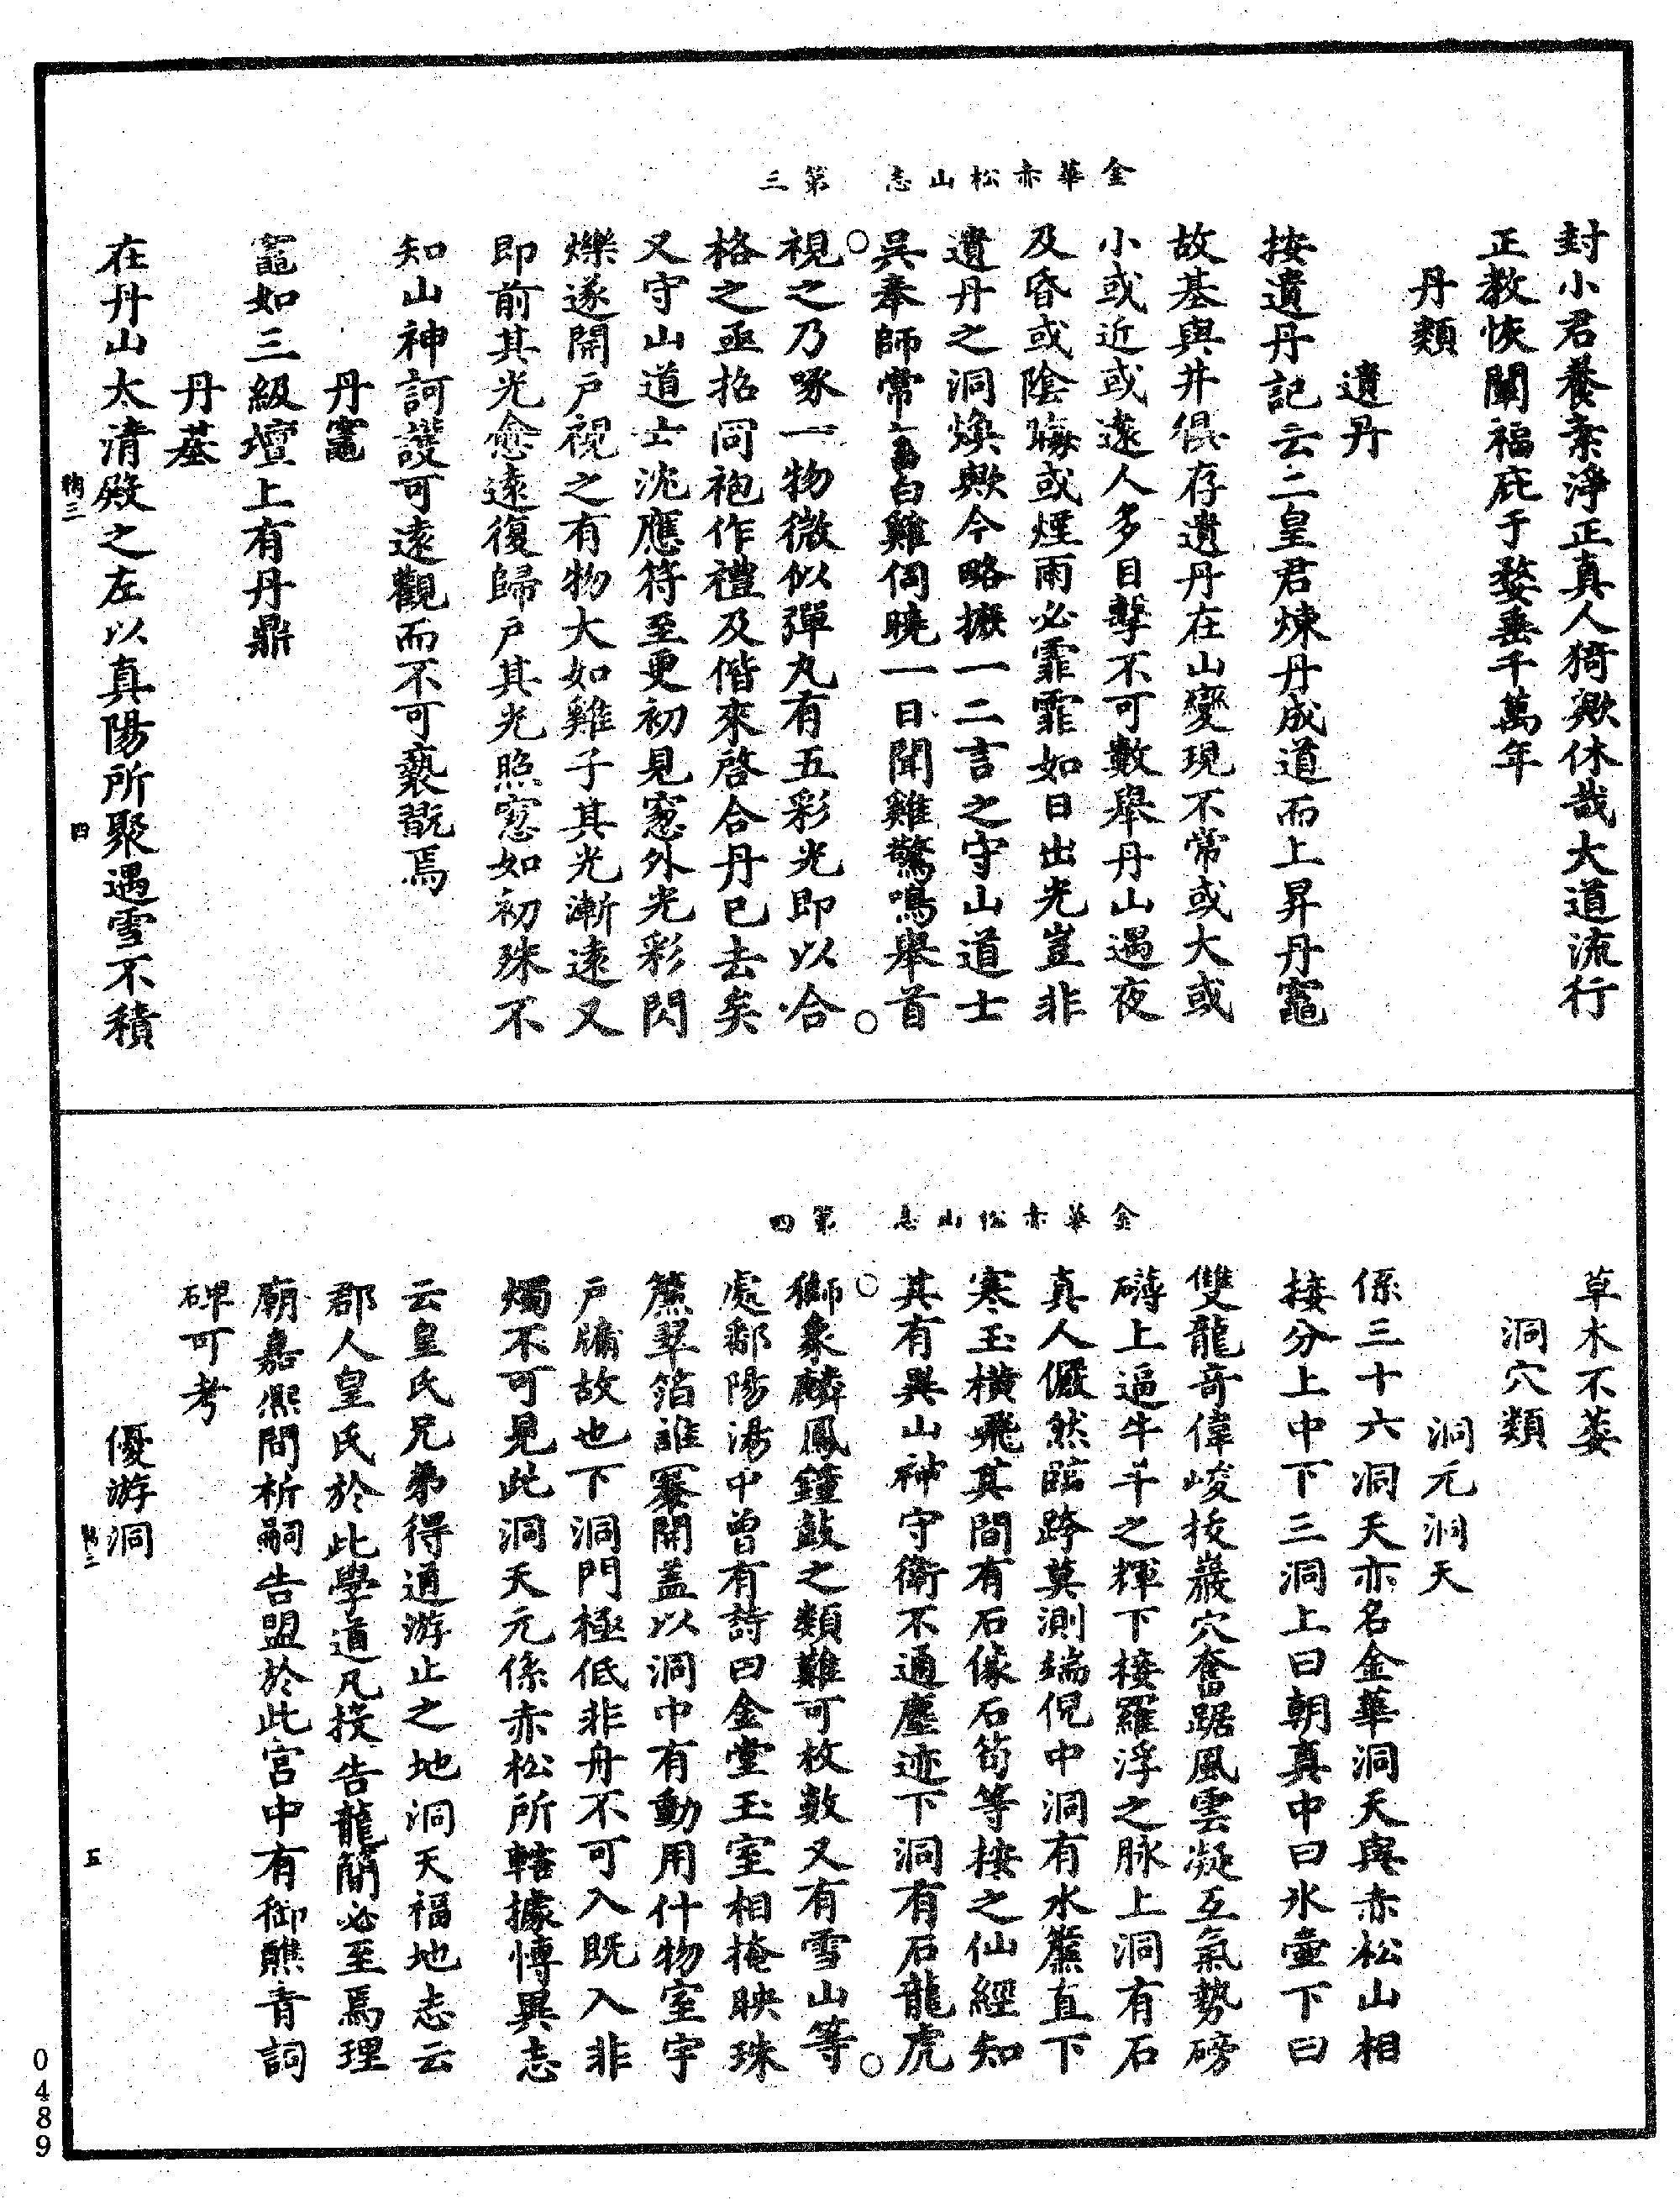 金華赤松山志 第三
封小君養素淨正真人猗歟休哉大道流行
正教恢闡福庇于婺垂千萬年
丹類
遺丹
按遺丹記云二皇君煉丹成道而上昇丹竈
故基與井俱存遺丹在山變現不常或大或
小或近或遠人多目擊不可數舉丹山遇夜
及昏或陰晦或煙雨必霏霏如日出光豈非
遺丹之洞煥歟今略摭一二言之守山道士
吳奉師常畜白雞伺曉一日聞雞驚鳴舉首
視之乃啄一物微似彈丸有五彩光即以合
格之亟招同袍作禮及偕來啓合丹已去矣
又守山道士沈應符至更初見窓外光彩閃
爍遂開戶視之有物大如雞子其光漸遠又
即前其光愈遠復歸戶其光照窓如初殊不
知山神訶護可遠觀而不可褻翫焉
丹竈
竈如三級壇上有丹鼎
丹基
在丹山太清殿之左以真陽所聚遇雪不積
四
金華赤松山志 第四
草木不萎
洞穴類
洞元洞天
係三十六洞天亦名金華洞天與赤松山相
接分上中下三洞上曰朝真中曰氷壷下曰
雙龍竒偉峻拔巖穴奮踞風雲凝互氣勢磅
礴上逼牛斗之輝下接羅浮之脉上洞有石
真人儼然臨跨莫測端倪中洞有水簾直下
寒玉横飛其間有石㒒石筍等按之仙經知
其有異山神守衛不通塵迹下洞有石龍虎
獅象麟鳳鐘鼓之類難可枚數又有雪山等
處鄱陽湯中曾有詩曰金堂玉室相掩映珠
簾翠箔誰褰開盖以洞中有動用什物室宇
戶牖故也下洞門極低非舟不可入既入非
燭不可見此洞天元係赤松所轄據愽異志
云皇氏兄弟得道游止之地洞天福地志云
郡人皇氏於此學道凡投告龍簡必至焉理
廟嘉熙間祈嗣告盟於此宫中有御醮青詞
碑可考
優游洞
五
0489